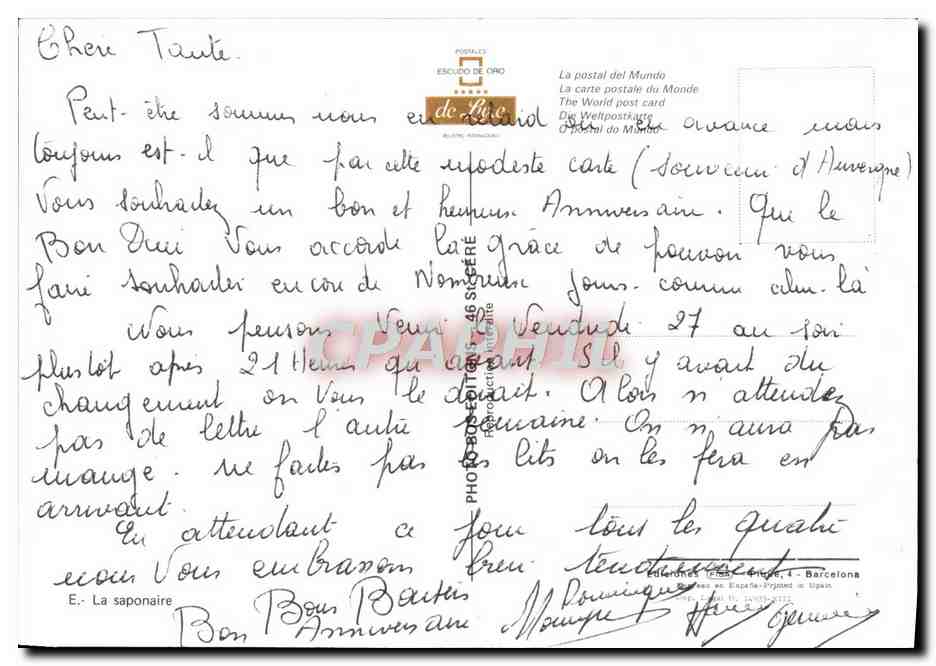 Cheri Tante.
POSTALES
ESCUDO DE ORO
de Luxe
La postal del Mundo
La carte postale du Monde
The World post card
Die Weltpostkarte
O postal do Mundo
Peut-être sommes nous en retard ou en avance mais
toujours est-il que par cette modeste carte (souvenir d'Auvergne)
Vous souhaitez un bon et heureux Anniversaire. Que le
Bon Dieu Vous accorde la grâce de pouvoir vous
faire souhaiter encore de Nombreux jours comme celui-là
Nous pensons Venir le Vendredi 27 au soir
plustôt après 21 Heures qu'avant. S'il y avait du
changement on Vous le dirait. Alors n'attendez
pas de lettre l'autre semaine. On n'aura pas
mangé. ne faites pas les lits on les fera en
arrivant.
En attendant ce jour tous les quatre
nous Vous embrassons bien tendrement
Bons Baisers
Bon Anniversaire
Dominique
PHOTO BOS EDITIONS 46 St. CÉRÉ
Reproduction interdite
CPARHIL
E.- La saponaire
Ediciones FISA 4 - Barcelona
Impreso en España-Printed in Spain